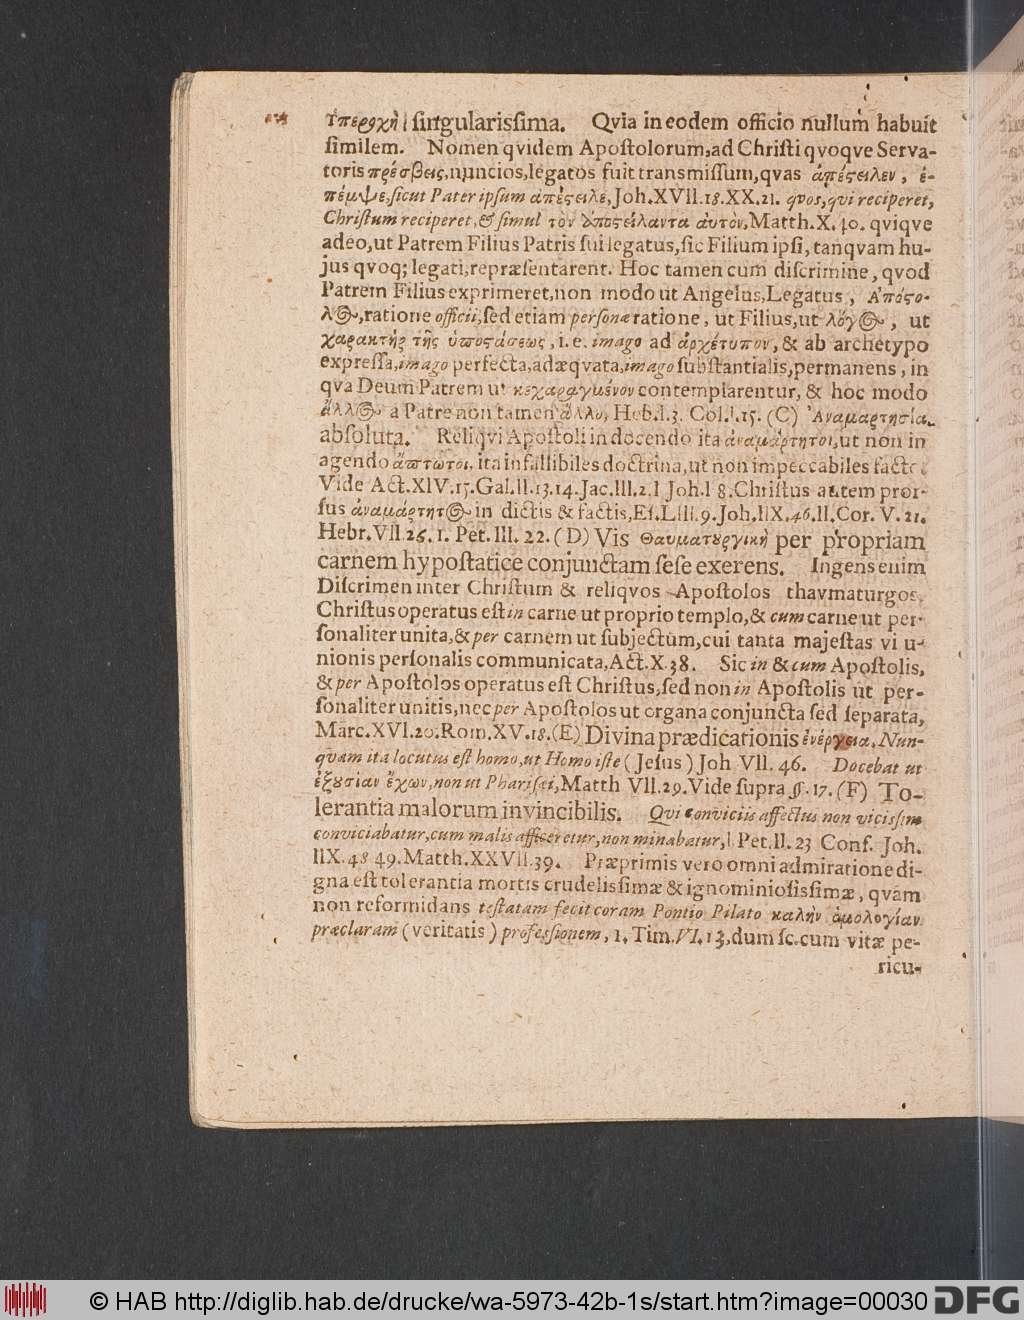 Ὑπεροχὴ singularissima. Qvia in eodem officio nullum habuit
similem. Nomen qvidem Apostolorum, ad Christi qvoqve Serva-
toris πρέσβεις, nuncios, legatos fuit transmissum, qvas ἀπέϛειλεν, ἐ-
πέμψε, sicut Pater ipsum ἀπέϛειλε, Joh. XVII. 18. XX. 21. qvos, qvi reciperet,
Christum reciperet, & simul τὸν ἀποϛείλαντα ἀυτὸν, Matth. X. 40. qviqve
adeo, ut Patrem Filius Patris sui legatus, sic Filium ipsi, tanqvam hu-
jus qvoq; legati, repræsentarent. Hoc tamen cum discrimine, qvod
Patrem Filius exprimeret, non modo ut Angelus, Legatus, Ἀπόϛο-
λος, ratione officii, sed etiam personæ ratione, ut Filius, ut λόγος, ut
χαρακτὴρ τῆς ὑποϛάσεως, i. e. imago ad ἀρχέτυπον, & ab archetypo
expressa, imago perfecta, adæqvata, imago substantialis, permanens, in
qva Deum Patrem ut κεχαραγμένον contemplarentur, & hoc modo
ἄλλος à Patre non tamen ἄλλο, Heb. I. 3. Col. I. 15. (C) Ἀναμαρτησία
absoluta. Reliqvi Apostoli in docendo ita ἀναμάρτητοι, ut non in
agendo ἄπτωτοι, ita infallibiles doctrina, ut non impeccabiles facto.
Vide Act. XIV. 15. Gal. II. 13. 14. Jac. III. 2. I Joh. I 8. Christus autem pror-
sus ἀναμάρτητος in dictis & factis, Es. LIII. 9. Joh. IIX. 46. II. Cor. V. 21.
Hebr. VII. 26. 1. Pet. III. 22. (D) Vis Θαυματουργικὴ per propriam
carnem hypostatice conjunctam sese exerens. Ingens enim
Discrimen inter Christum & reliqvos Apostolos thavmaturgos.
Christus operatus est in carne ut proprio templo, & cum carne ut per-
sonaliter unita, & per carnem ut subjectum, cui tanta majestas vi u-
nionis personalis communicata, Act. X. 38. Sic in & cum Apostolis,
& per Apostolos operatus est Christus, sed non in Apostolis ut per-
sonaliter unitis, nec per Apostolos ut organa conjuncta sed separata,
Marc. XVI. 20. Rom. XV. 18. (E) Divina prædicationis ἐνέργεια. Nun-
qvam ita locutus est homo, ut Homo iste (Jesus) Joh VII. 46. Docebat ut
ἐξουσίαν ἔχων, non ut Pharisæi, Matth VII. 29. Vide supra §. 17. (F) To-
lerantia malorum invincibilis. Qvi conviciis affectus non vicissim
conviciabatur, cum malis afficeretur, non minabatur, I. Pet. II. 23 Conf. Joh.
IIX. 48 49. Matth. XXVII. 39. Præprimis vero omni admiratione di-
gna est tolerantia mortis crudelissimæ & ignominiosissimæ, qvam
non reformidans testatam fecit coram Pontio Pilato καλὴν ὁμολογίαν
præclaram (veritatis) professionem, 1. Tim. VI. 13, dum sc. cum vitæ pe-
ricu-
© HAB http://diglib.hab.de/drucke/wa-5973-42b-1s/start.htm?image=00030 DFG